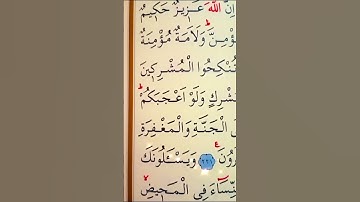 اِنَّ اللّٰهَ عَزٖيزٌ حَكٖيمٌ
ؤْمِنَّ وَلَاَمَةٌ مُؤْمِنَةٌ
تُنْكِحُوا الْمُشْرِكٖينَ
شْرِكٍ وَلَوْ اَعْجَبَكُمْ
ى الْجَنَّةِ وَالْمَغْفِرَةِ
رُونَ ﴿٢٢١﴾ وَيَسْـَٔلُونَكَ
نِّسَٓاءَ فِي الْمَحٖيضِ